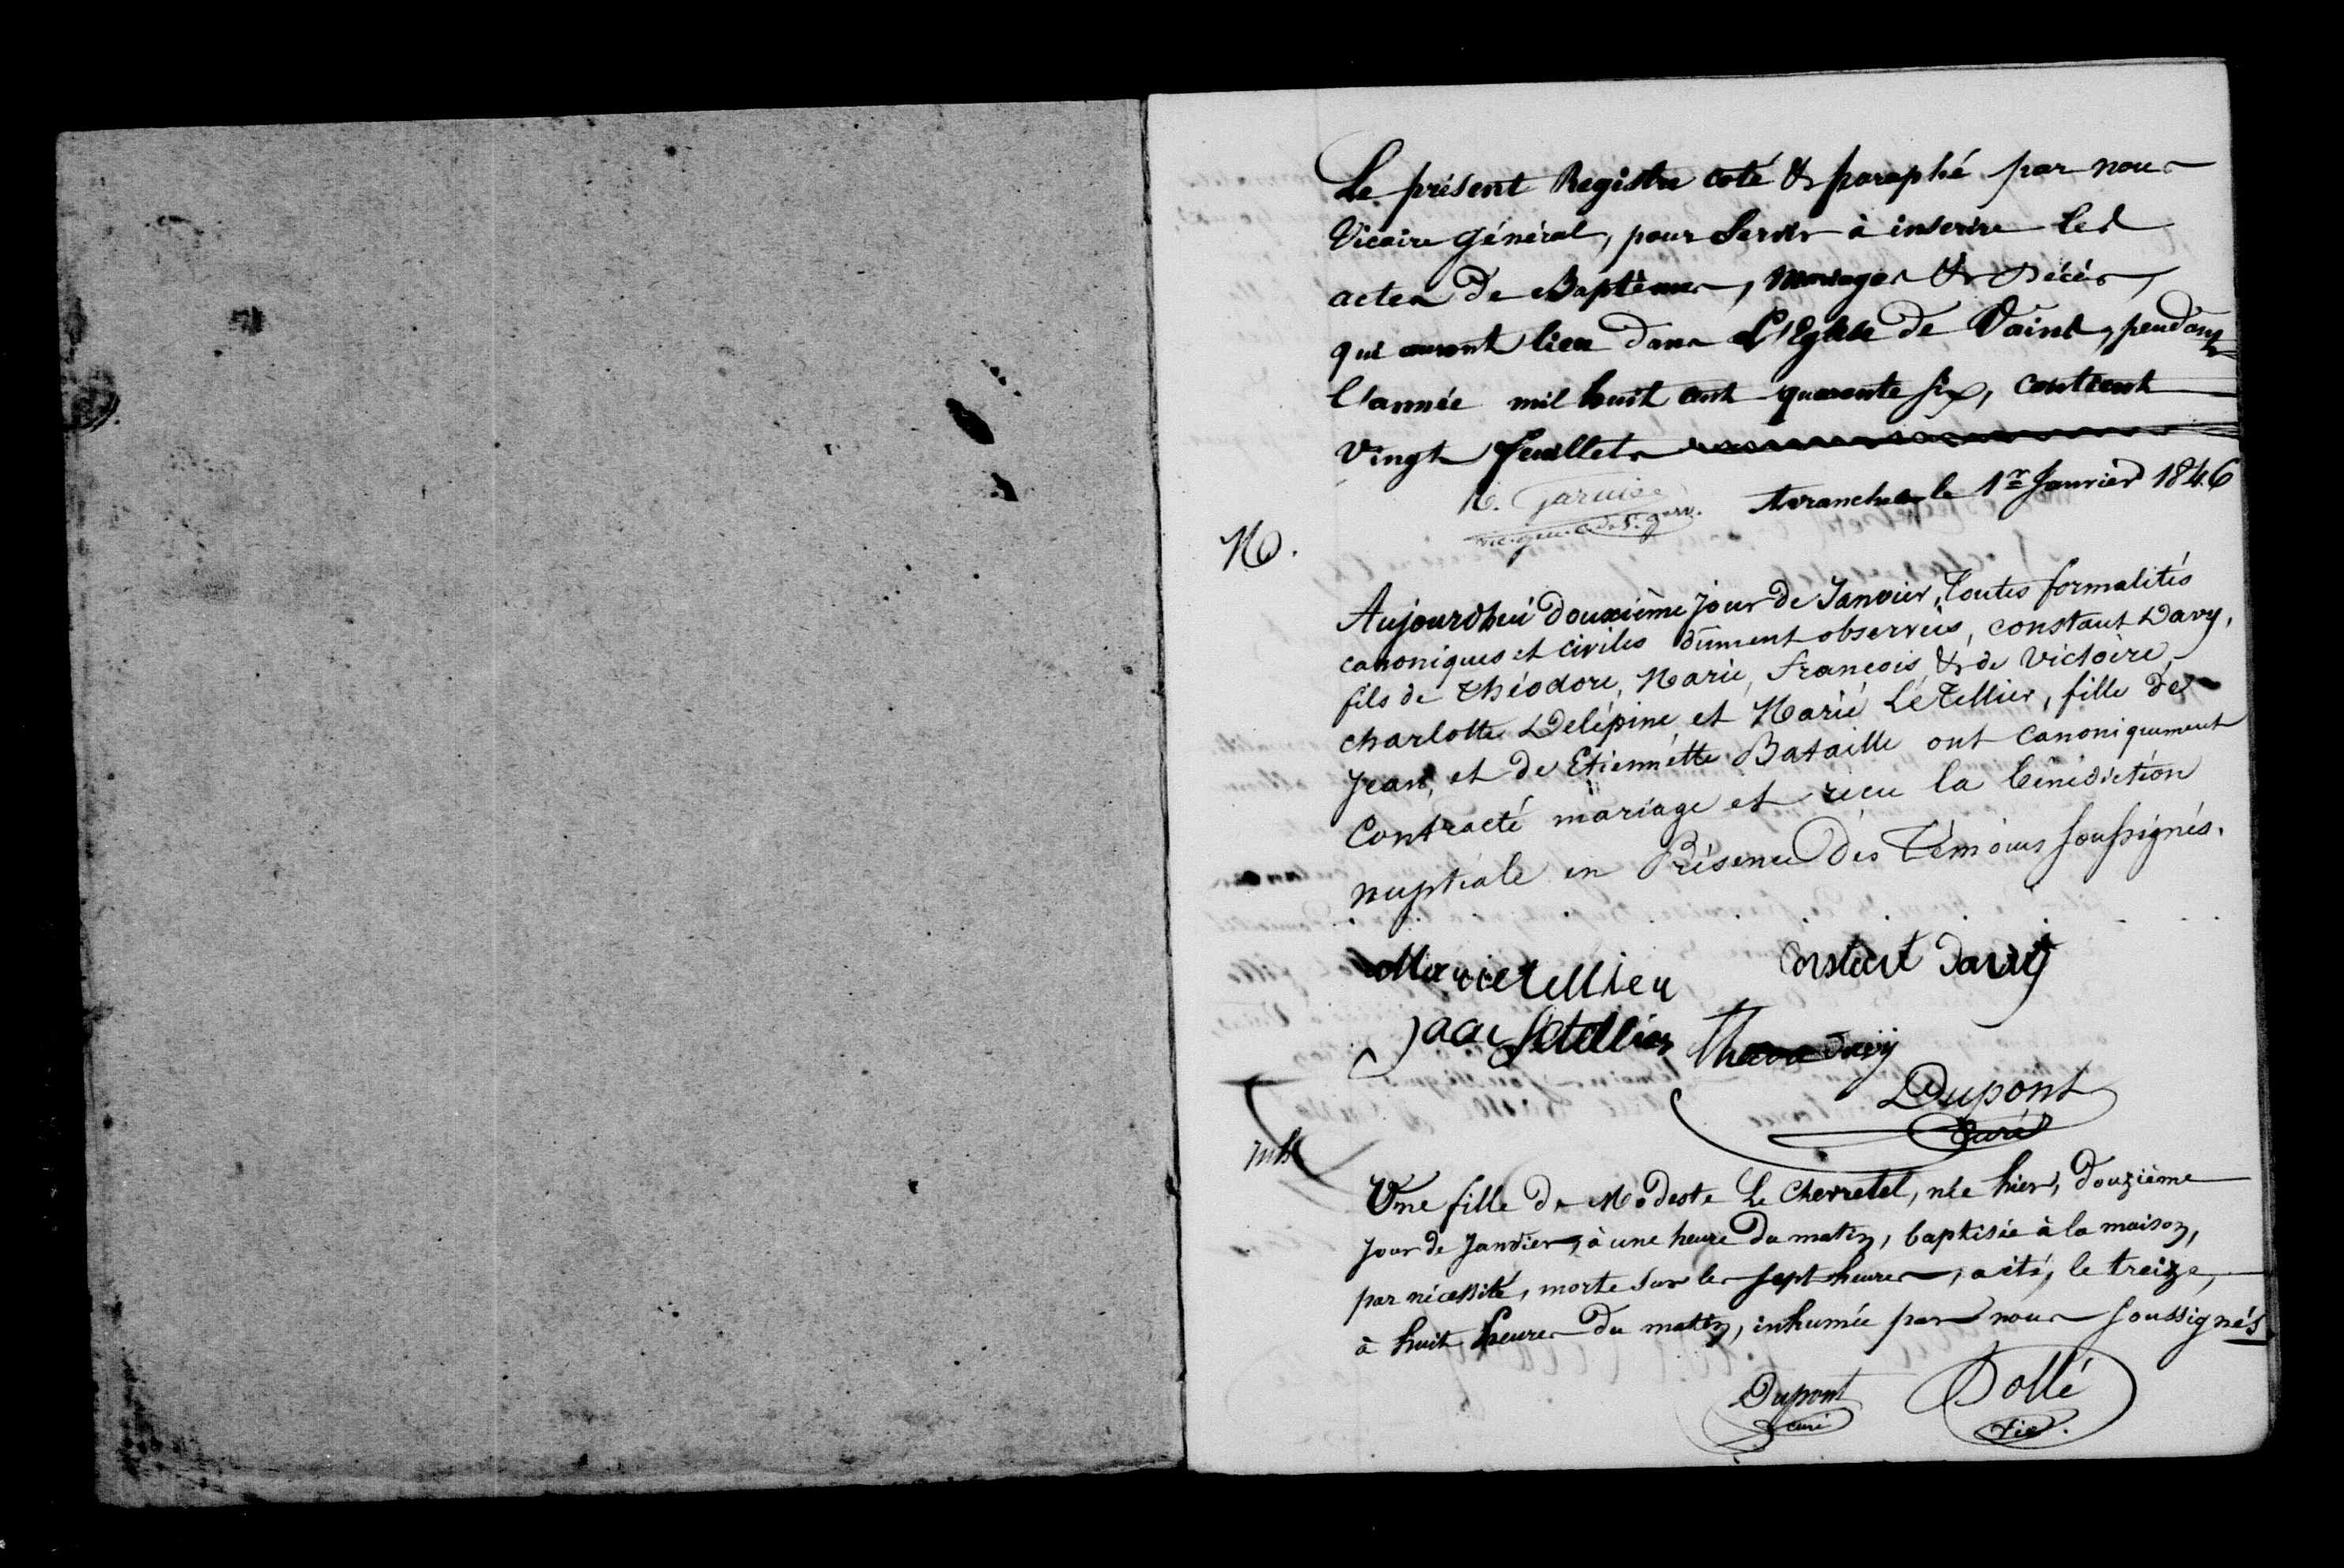 Le présent Registre coté & paraphé par nous
Vicaire Général, pour servir à inscrire les
actes de Baptêmes, Mariages & Décès,
qui auront lieu dans L'Eglise de Vains, pendant
l'année mil huit cent quarante six, contient
vingt feuillets
Avranches le 1er Janvier 1846
M.
Aujourdhui douxième jour de Janvier, toutes formalités
canoniques et civiles dûment observées, constant Davy,
fils de théodore, Marie, François & de Victoire,
charlotte Delépine et Marie Letellier, fille de
jean, et de Etiennette Bataille ont canoniquement
contracté mariage et reçu la bénédiction
nuptiale en Présence des Témoins soussignés.
Marie tellier Constant Davy
Letellier davy
Dupont
Curé
inh
Une fille de Modeste Le Cherretel, née hier, douzième
jour de janvier, à une heure du matin, baptisée à la maison,
par nécessité, morte sur les sept heures, a été, le treize,
à huit heures du matin, inhumée par nous soussignés
Dupont Dollé
curé vic.